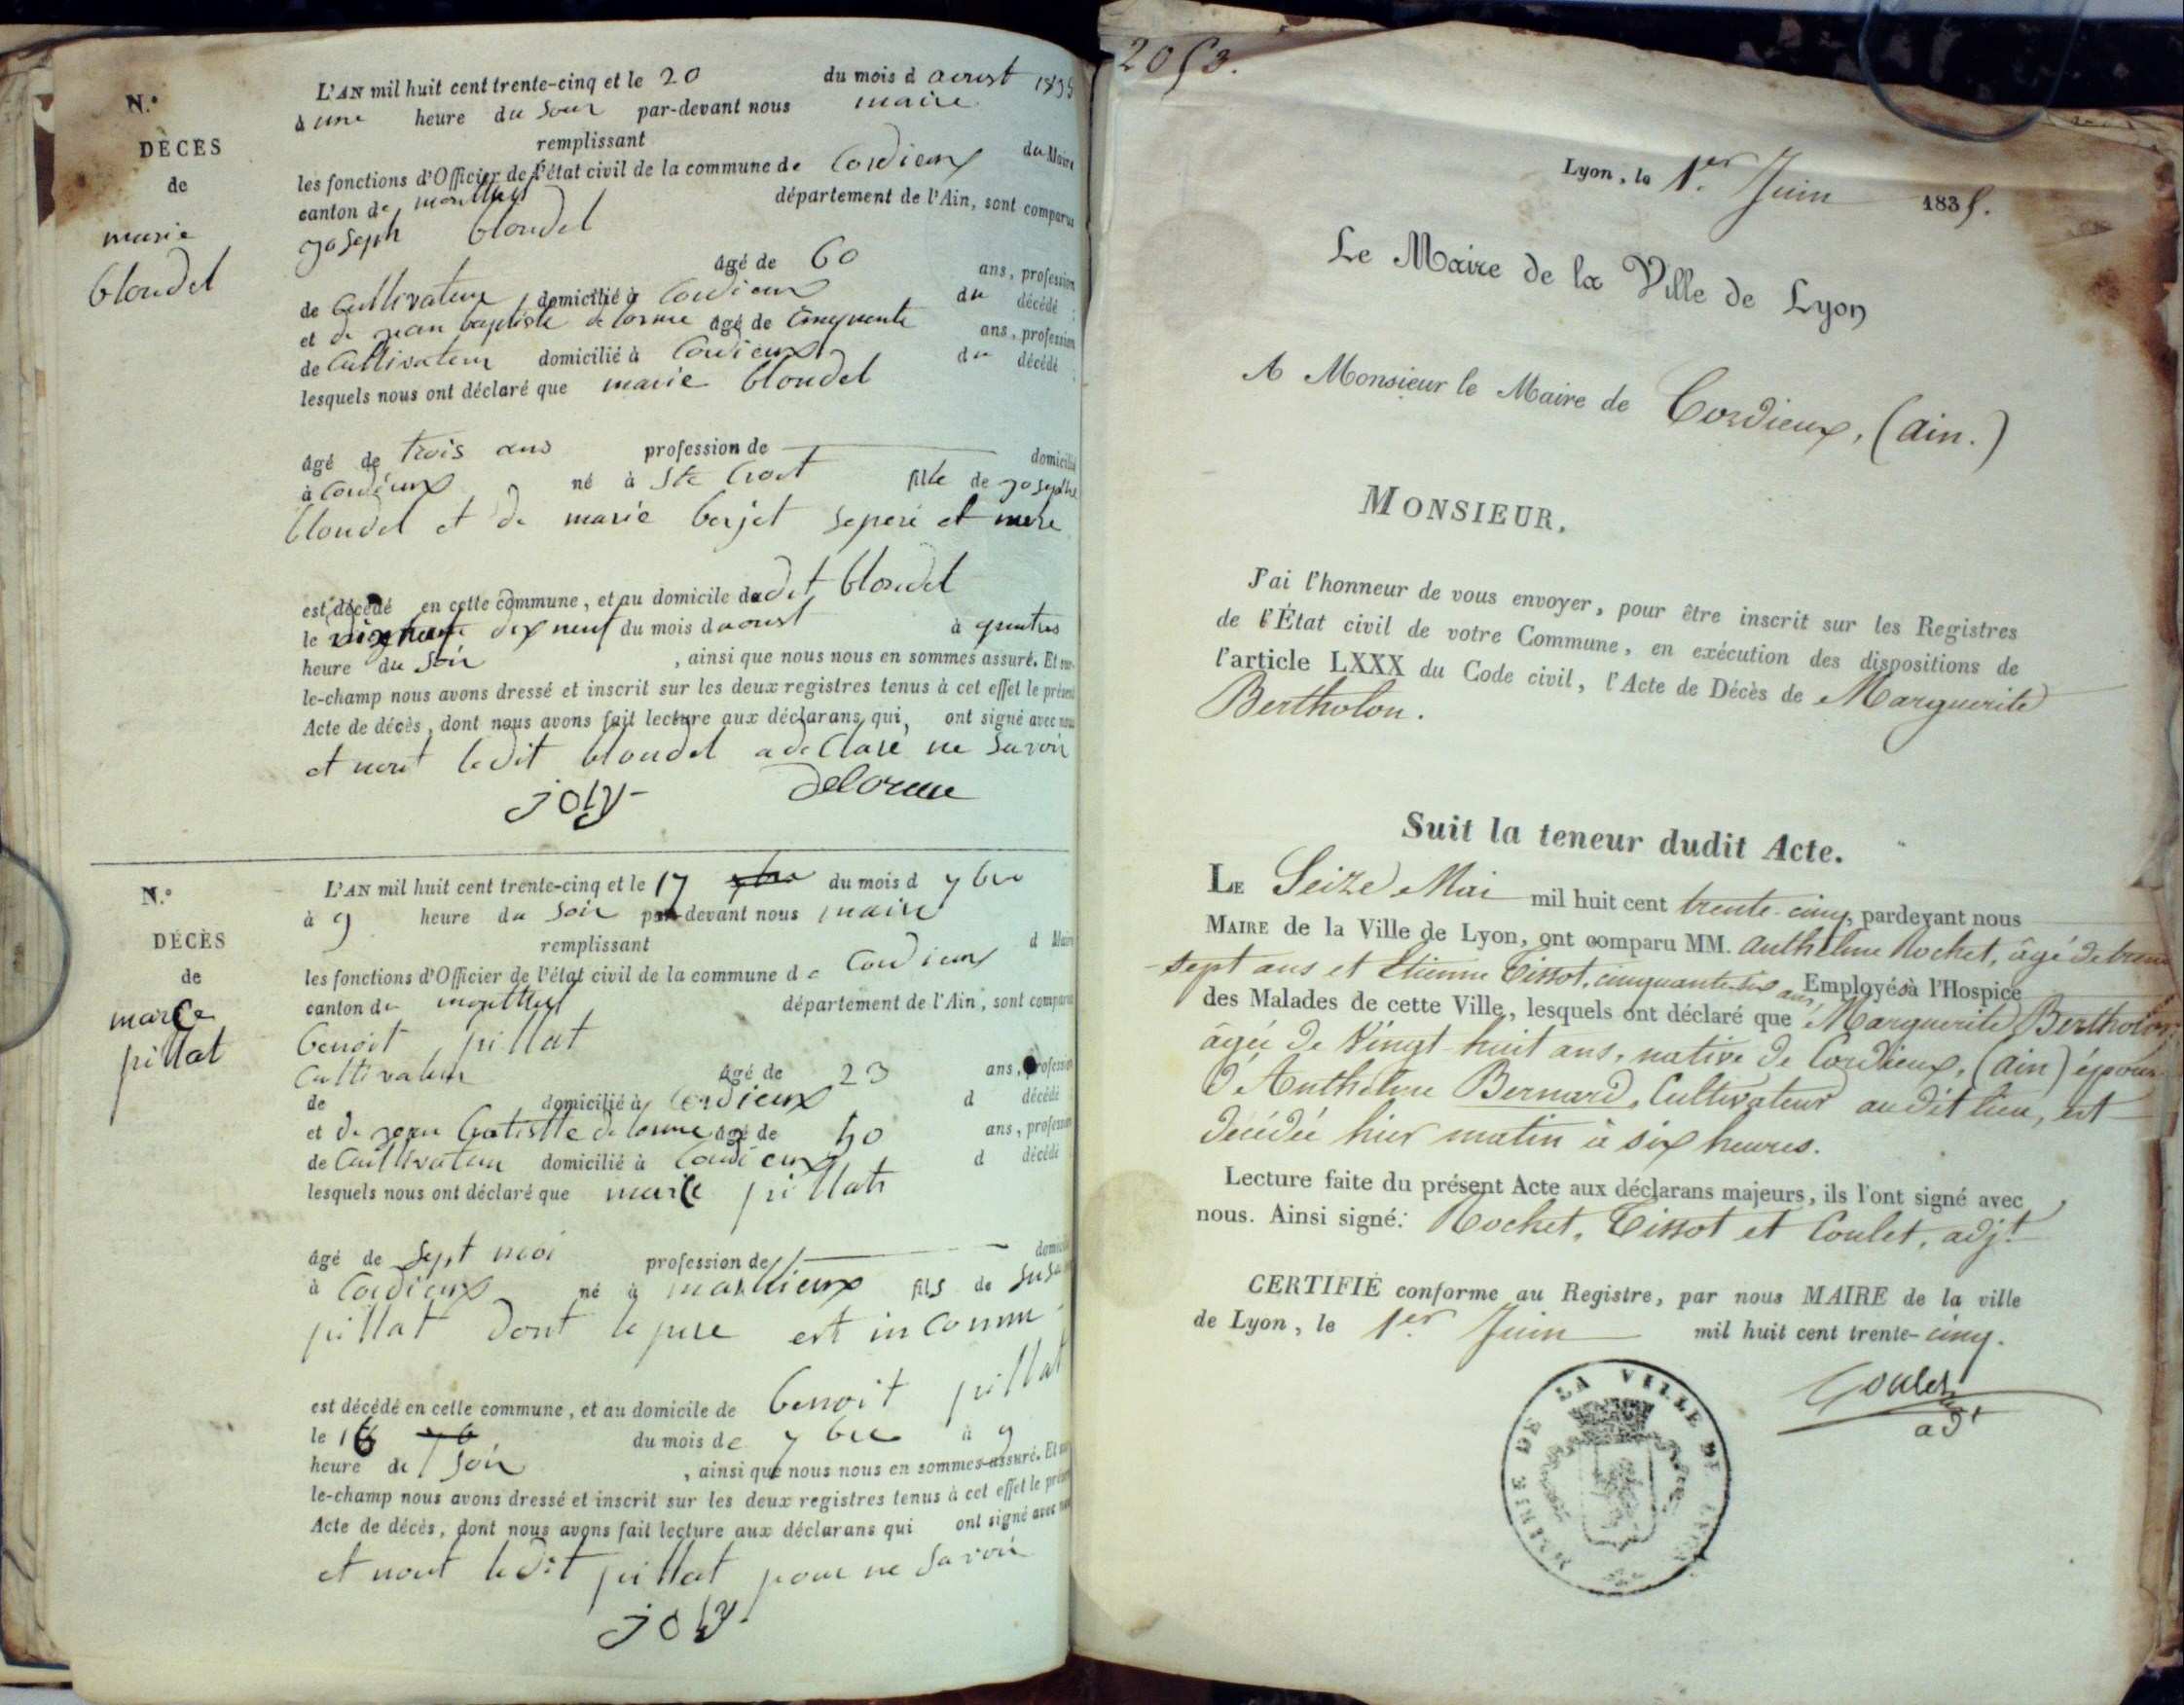 N.o
DÉCÈS
de
marie
bloudel
L'AN mil huit cent trente-cinq et le 20 du mois d aoust 1835
à une heure du Soir par-devant nous maire
remplissant
les fonctions d'Officier de l'état civil de la commune de Cordieux du Maire
canton de montluel département de l'Ain, sont comparus
joseph bloudel
âgé de 60 ans, profession
de Cultivateur domicilié à Cordieux du décédé ;
et de jean baptiste delorme âgé de Cinquente ans, profession
de Cultivateur domicilié à Cordieux du décédé ;
lesquels nous ont déclaré que marie bloudel
âgé de trois ans profession de domicilié
à Cordieux né à Ste Croit fille de joseph
bloudel et de marie berjet se pere et mere
est décédé en cette commune, et au domicile dudit bloudel
le dix neuf du mois d aoust à quatres
heure du Soir , ainsi que nous nous en sommes assuré. Et sur-
le-champ nous avons dressé et inscrit sur les deux registres tenus à cet effet le présent
Acte de décès, dont nous avons fait lecture aux déclarans qui, ont signé avec nous
et nont ledit bloudel a declaré ne Savoir
joly delorme
N.o
DÉCÈS
de
marce
pillat
L'AN mil huit cent trente-cinq et le 17 du mois d 7bre
à 9 heure du Soir par-devant nous maire
remplissant
les fonctions d'Officier de l'état civil de la commune de Cordieux d Maire
canton de montluel département de l'Ain, sont comparus
benoit pillat
Cultivateur âgé de 23 ans, profession
de domicilié à Cordieux d décédé
et de jean batistte delorme âgé de 50 ans, profession
de Cultivateur domicilié à Cordieux d décédé
lesquels nous ont déclaré que marce pillat
âgé de Sept moi profession de domicilié
à Cordieux né à fils de
pillat dont le pere est inConnu
est décédé en cette commune, et au domicile de benoit pillat
le 16 du mois de 7bre à 9
heure de Soir , ainsi que nous nous en sommes assuré. Et sur-
le-champ nous avons dressé et inscrit sur les deux registres tenus à cet effet le présent
Acte de décès, dont nous avons fait lecture aux déclarans qui ont signé avec nous
et nont ledit pillat pour ne Savoir
joly
2053.
Lyon, le 1er Juin 1835.
Le Maire de la Ville de Lyon
A Monsieur le Maire de Cordieux, (Ain.)
MONSIEUR,
J'ai l'honneur de vous envoyer, pour être inscrit sur les Registres
de l'État civil de votre Commune, en exécution des dispositions de
l'article LXXX du Code civil, l'Acte de Décès de Marguerite
Bertholon.
Suit la teneur dudit Acte.
LE Seize Mai mil huit cent trente-cinq, pardevant nous
MAIRE de la Ville de Lyon, ont comparu MM. Anthelme Rochet, âgé de trente
sept ans et Etienne Tissot, cinquante-six ans, Employés à l'Hospice
des Malades de cette Ville, lesquels ont déclaré que Marguerite Bertholon,
âgée de Vingt-huit ans, native de Cordieux, (Ain) épouse
d'Anthelme Bernard, Cultivateur audit lieu, est
décédée hier matin à six heures.
Lecture faite du présent Acte aux déclarans majeurs, ils l'ont signé avec
nous. Ainsi signé: Rochet, Tissot et Coulet, adjt
CERTIFIÉ conforme au Registre, par nous MAIRE de la ville
de Lyon, le 1er Juin mil huit cent trente-cinq.
Coulet
adt
MAIRIE DE LA VILLE DE LYON